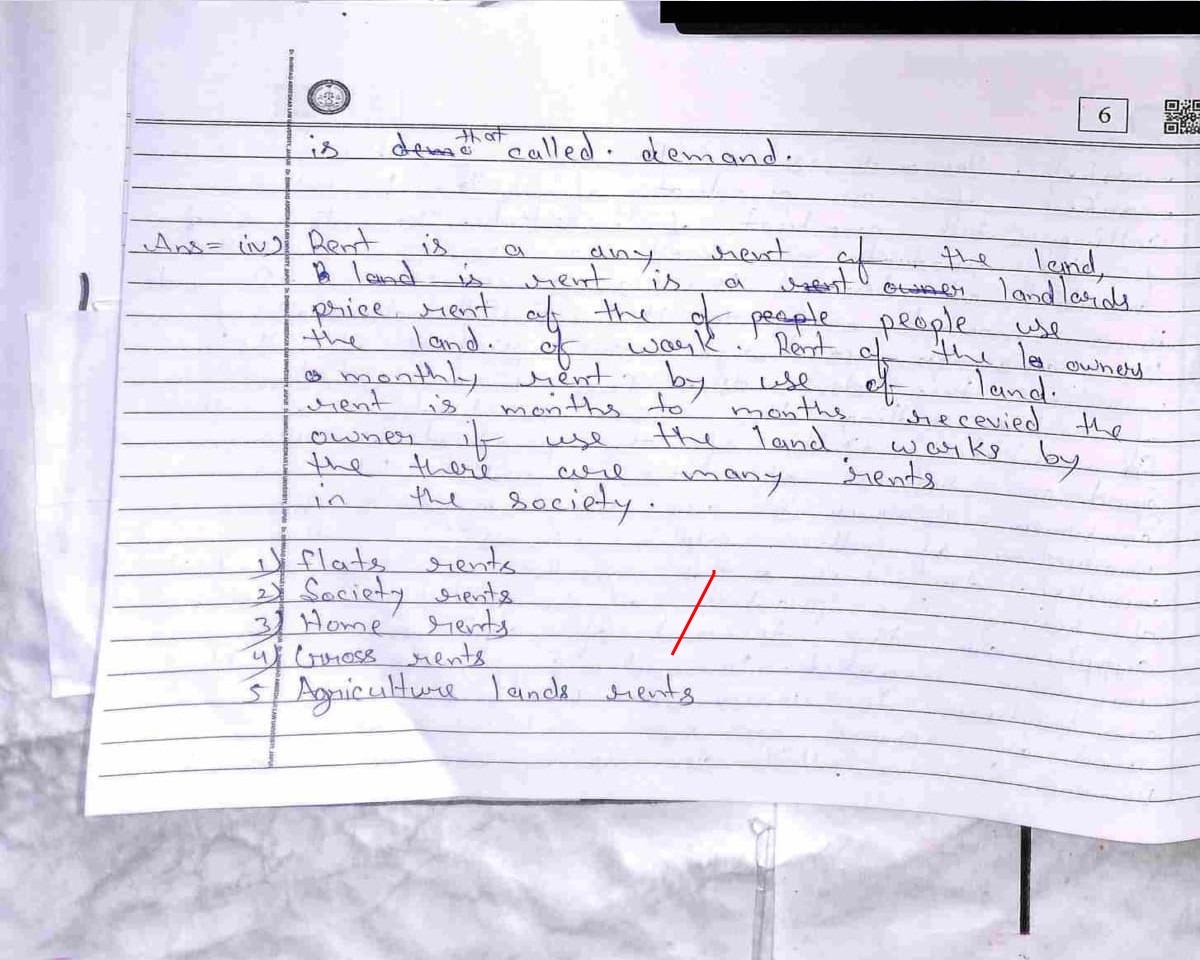 6
is that called. demand.
Ans= (iv) Rent is a any rent of the land,
land is rent is a landlards
price rent of the of people use
the land. of wark. Rent of the owners
monthly rent by use of land.
rent is months to months recevied the
owner if use the land warks by
the there are many rents
in the society.
1) flats rents
2) Society rents
3) Home rents
4) Gross rents
5 Agriculture lands rents